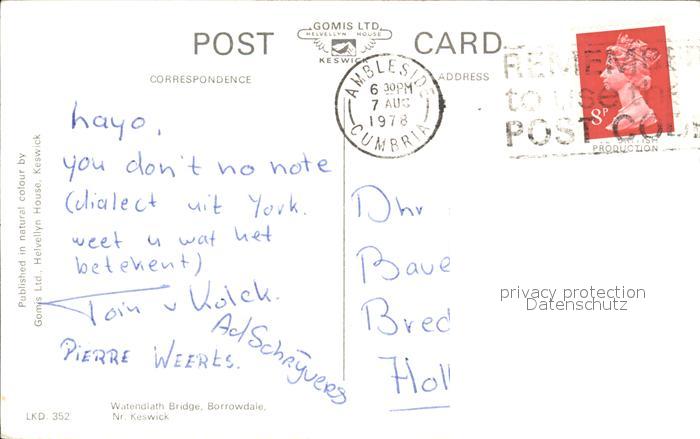 GOMIS LTD.
HELVELLYN HOUSE
KESWICK
POST CARD
CORRESPONDENCE
ADDRESS
AMBLESIDE
6 30PM
7 AUG
1978
CUMBRIA
REMEMBER
to use
POST CODE
8P
BRITISH
PRODUCTION
hayo,
you don't no note
(dialect uit York.
weet u wat het
betekent)
Toin v Kolck.
Ad Schrijvers
PIERRE WEERTS.
Dhr
Bave
Bred
Holl
privacy protection
Datenschutz
Published in natural colour by
Gomis Ltd., Helvellyn House, Keswick
LKD. 352
Watendlath Bridge, Borrowdale,
Nr. Keswick